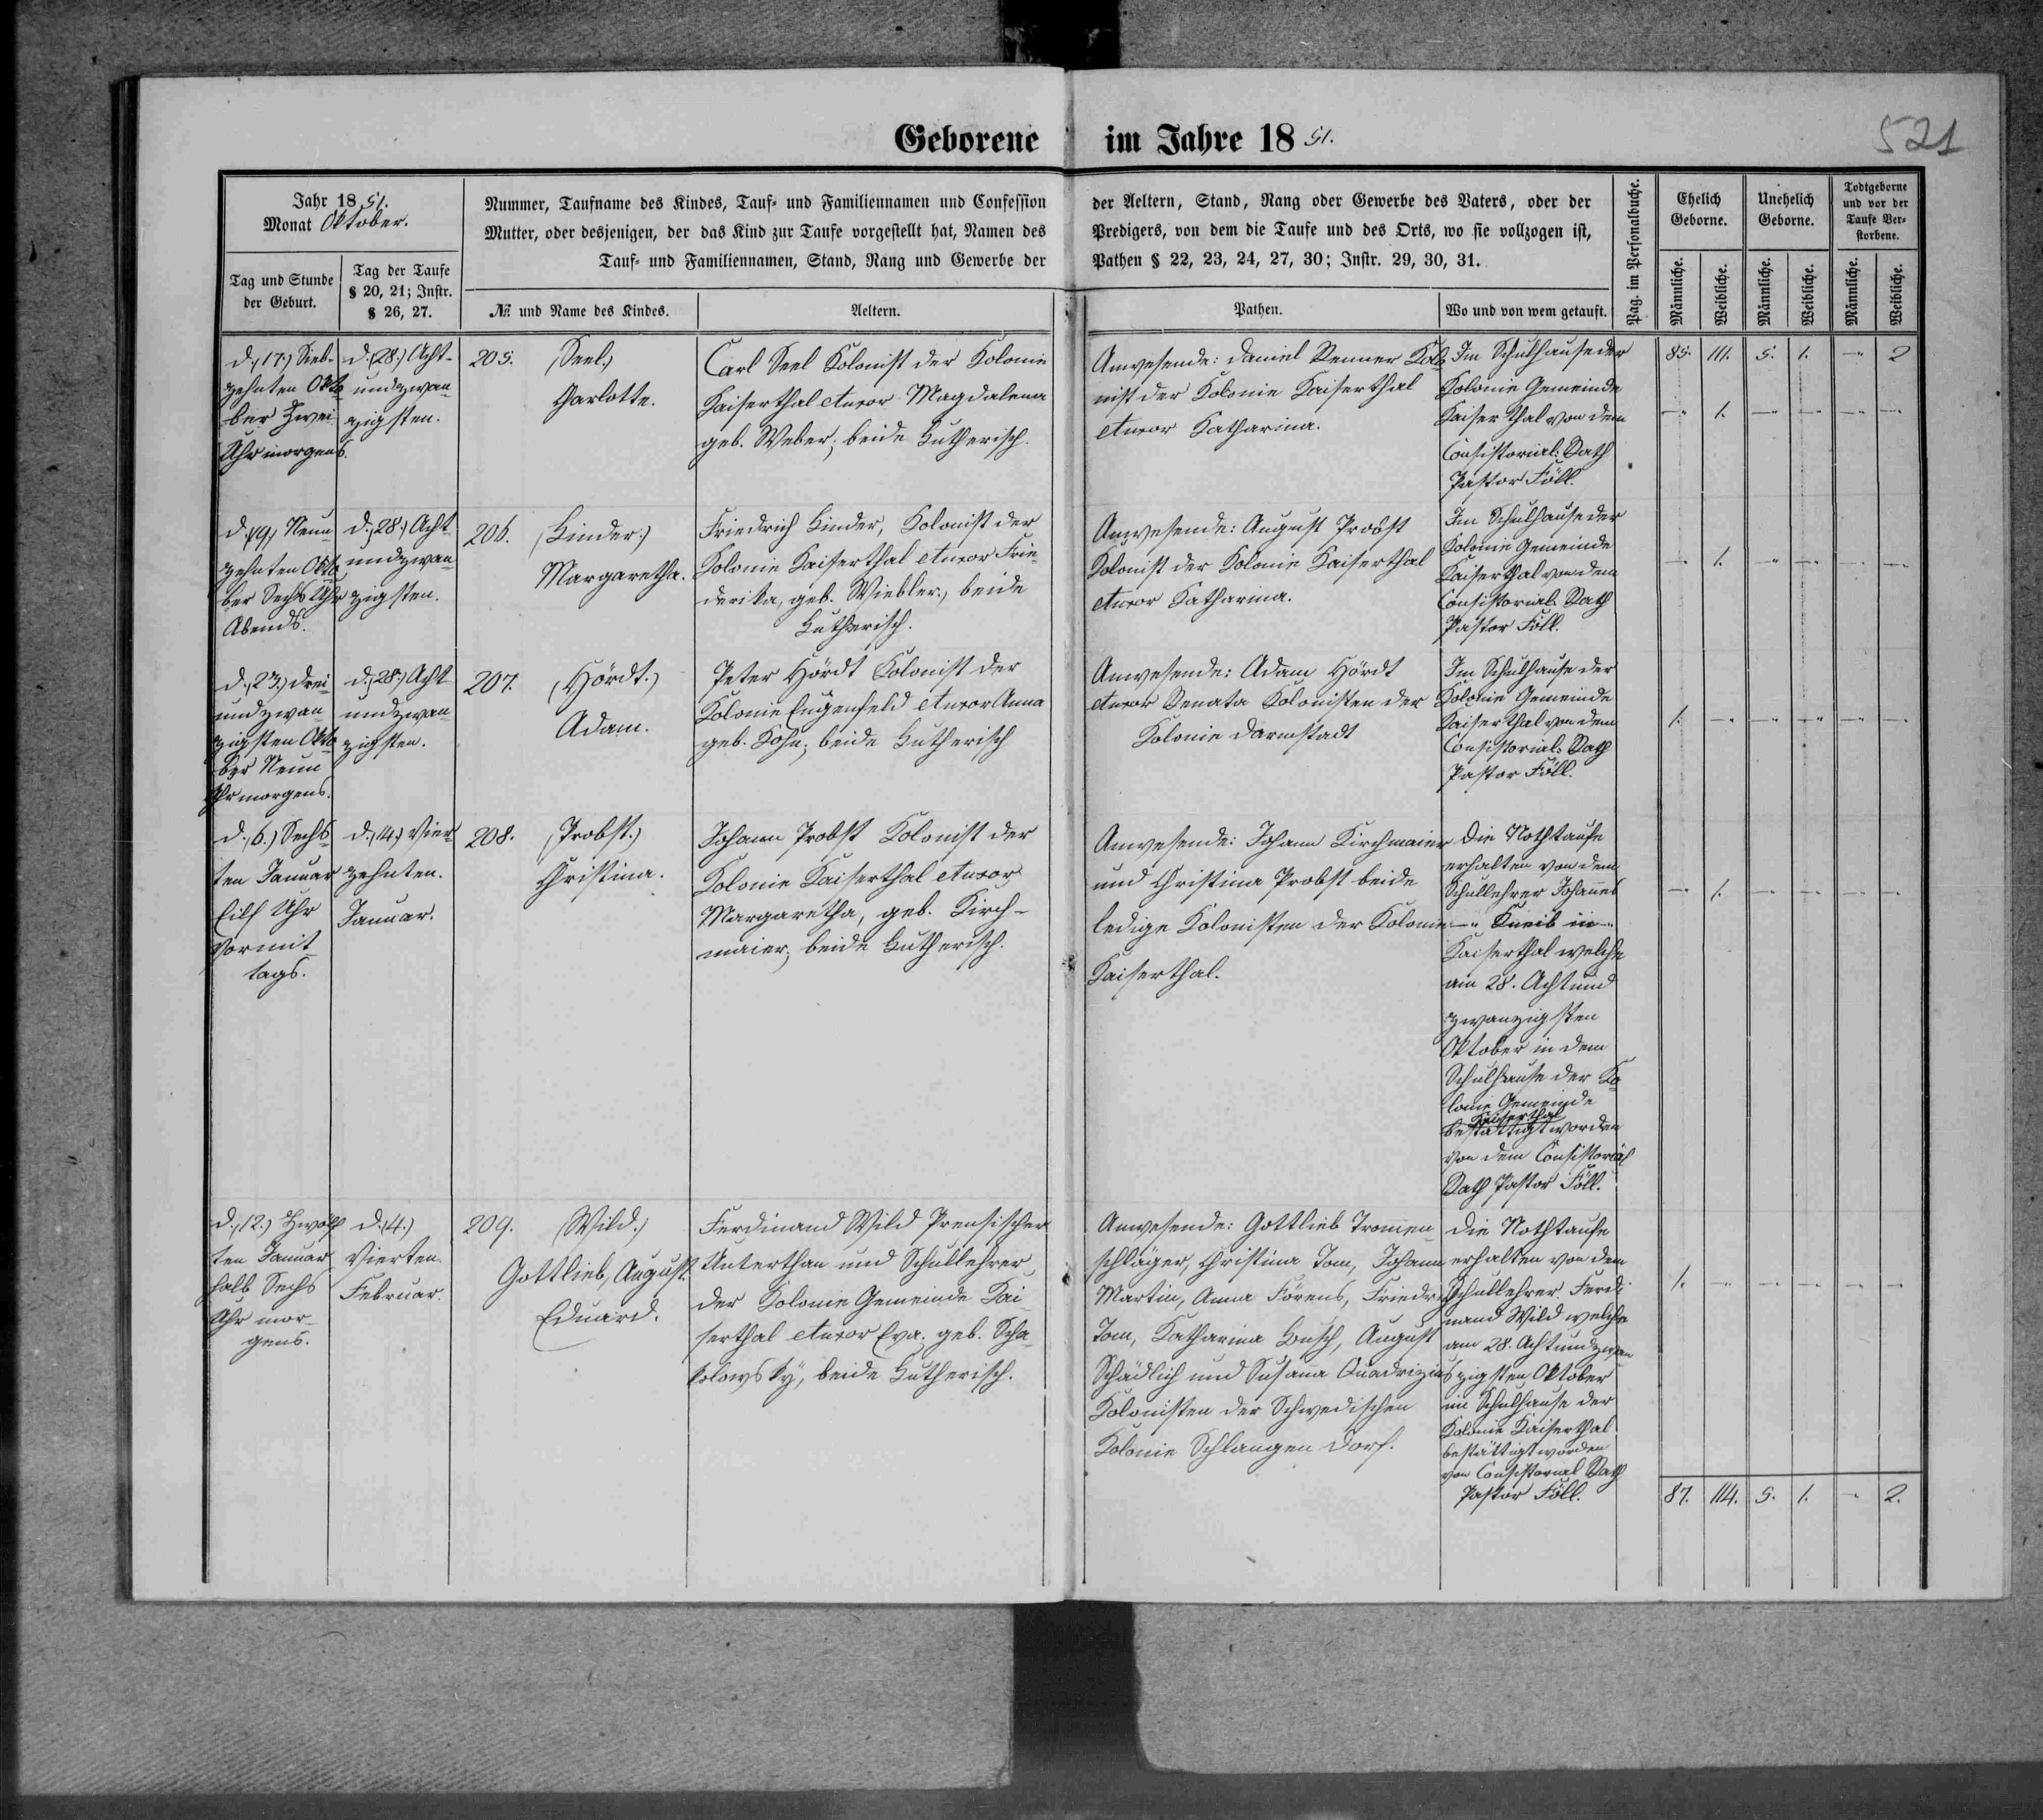 Geborene im Jahre 1851.
521
Jahr 1851.
Monat Oktober.
Tag und Stunde
der Geburt.
Tag der Taufe
§ 20, 21; Instr.
§ 26, 27.
Nummer, Taufname des Kindes, Tauf- und Familiennamen und Confession
Mutter, oder desjenigen, der das Kind zur Taufe vorgestellt hat, Namen des
Tauf- und Familiennamen, Stand, Rang und Gewerbe der
№ und Name des Kindes.
Aeltern.
der Aeltern, Stand, Rang oder Gewerbe des Vaters, oder der
Predigers, von dem die Taufe und des Orts, wo sie vollzogen ist,
Pathen § 22, 23, 24, 27, 30; Instr. 29, 30, 31.
Pathen.
Wo und von wem getauft.
Pag. im Personalbuche.
Ehelich
Geborne.
Unehelich
Geborne.
Todtgeborne
und vor der
Taufe Ver-
storbene.
Männliche.
Weibliche.
Männliche.
Weibliche.
Männliche.
Weibliche.
d. (17.) Sieb-
zehnten Okto
ber Zwei
Uhr morgens.
d. (28.) Acht-
undzwan
zigsten.
205. (Seel.)
Charlotte.
Carl Seel Kolonist der Kolonie
Kaiserthal et uxor Magdalena
geb. Weber; beide Lutherisch.
Anwesende: Daniel Renner Kolo
nist der Kolonie Kaiserthal
et uxor Katharina.
Im Schulhause der
Kolonie Gemeinde
Kaiserthal von dem
Consistorial: Rath
Pastor Föll.
85. 111. 5. 1. -"- 2
-"- 1. -"- -"- -"- -"-
d. (19.) Neun
zehnten Okto
ber Sechs Uhr
Abends.
d. (28.) Acht
undzwan
zigsten.
206. (Binder.)
Margaretha.
Friedrich Binder, Kolonist der
Kolonie Kaiserthal et uxor Frie
derika, geb. Wiebler, beide
Lutherisch.
Anwesende: August Probst
Kolonist der Kolonie Kaiserthal
et uxor Katharina.
Im Schulhause der
Kolonie Gemeinde
Kaiserthal von dem
Consistorial: Rath
Pastor Föll.
-"- 1. -"- -"- -"- -"-
d. (23.) Drei
undzwan
zigsten Okto
ber Neun
Uhr morgens.
d. (28.) Acht
undzwan
zigsten.
207. (Hördt.)
Adam.
Peter Hördt Kolonist der
Kolonie Eugenfeld et uxor Anna
geb. Kohn; beide Lutherisch
Anwesende: Adam Hördt
et uxor Renata Kolonisten der
Kolonie Darmstadt
Im Schulhause der
Kolonie Gemeinde
Kaiserthal von dem
Consistorial: Rath
Pastor Föll.
1. -"- -"- -"- -"- -"-
d. (6.) Sechs
ten Januar
Eilf Uhr
Vormit
tags.
d. (14.) Vier
zehnten.
Januar.
208. (Probst.)
Christina.
Johann Probst Kolonist der
Kolonie Kaiserthal et uxor
Margaretha, geb. Kirch-
maier; beide Lutherisch.
Anwesende: Johann Kirchmaier
und Christina Probst beide
ledige Kolonisten der Kolonie
Kaiserthal.
Die Nothtaufe
erhalten von dem
Schullehrer Johannes
-"- Kneib in -"-
Kaiserthal welche
am 28. Achtund
zwanzigsten
Oktober in dem
Schulhause der Ko
lonie Gemeinde
Kaiserthal
bestättigt worden
von dem Consistorial
Rath Pastor Föll.
-"- 1. -"- -"- -"- -"-
d. (12.) Zwölf
ten Januar
halb Sechs
Uhr mor-
gens.
d. (4.)
Vierten
Februar.
209. (Wild.)
Gottlieb, August.
Eduard.
Ferdinand Wild Preusischer
Unterthan und Schullehrer
der Kolonie Gemeinde Kai
serthal et uxor Eva. geb. Scha
kolowsky, beide Lutherisch.
Anwesende: Gottlieb Tromen
schläger, Christina Tom, Johann
Martin, Anna Förens, Friedrich
Tom, Katharina Busch, August
Schädlich und Susana Quadrizius
Kolonisten der Schwedischen
Kolonie Schlangendorf.
Die Nothtaufe
erhalten von dem
Schullehrer Ferdi
nand Wild welche
am 28. Achtundzwan
zigsten Oktober
im Schulhause der
Kolonie Kaiserthal
bestättigt worden
von Consistorial Rath
Pastor Föll.
1. -"- -"- -"- -"- -"-
87. 114. 5. 1. -"- 2.